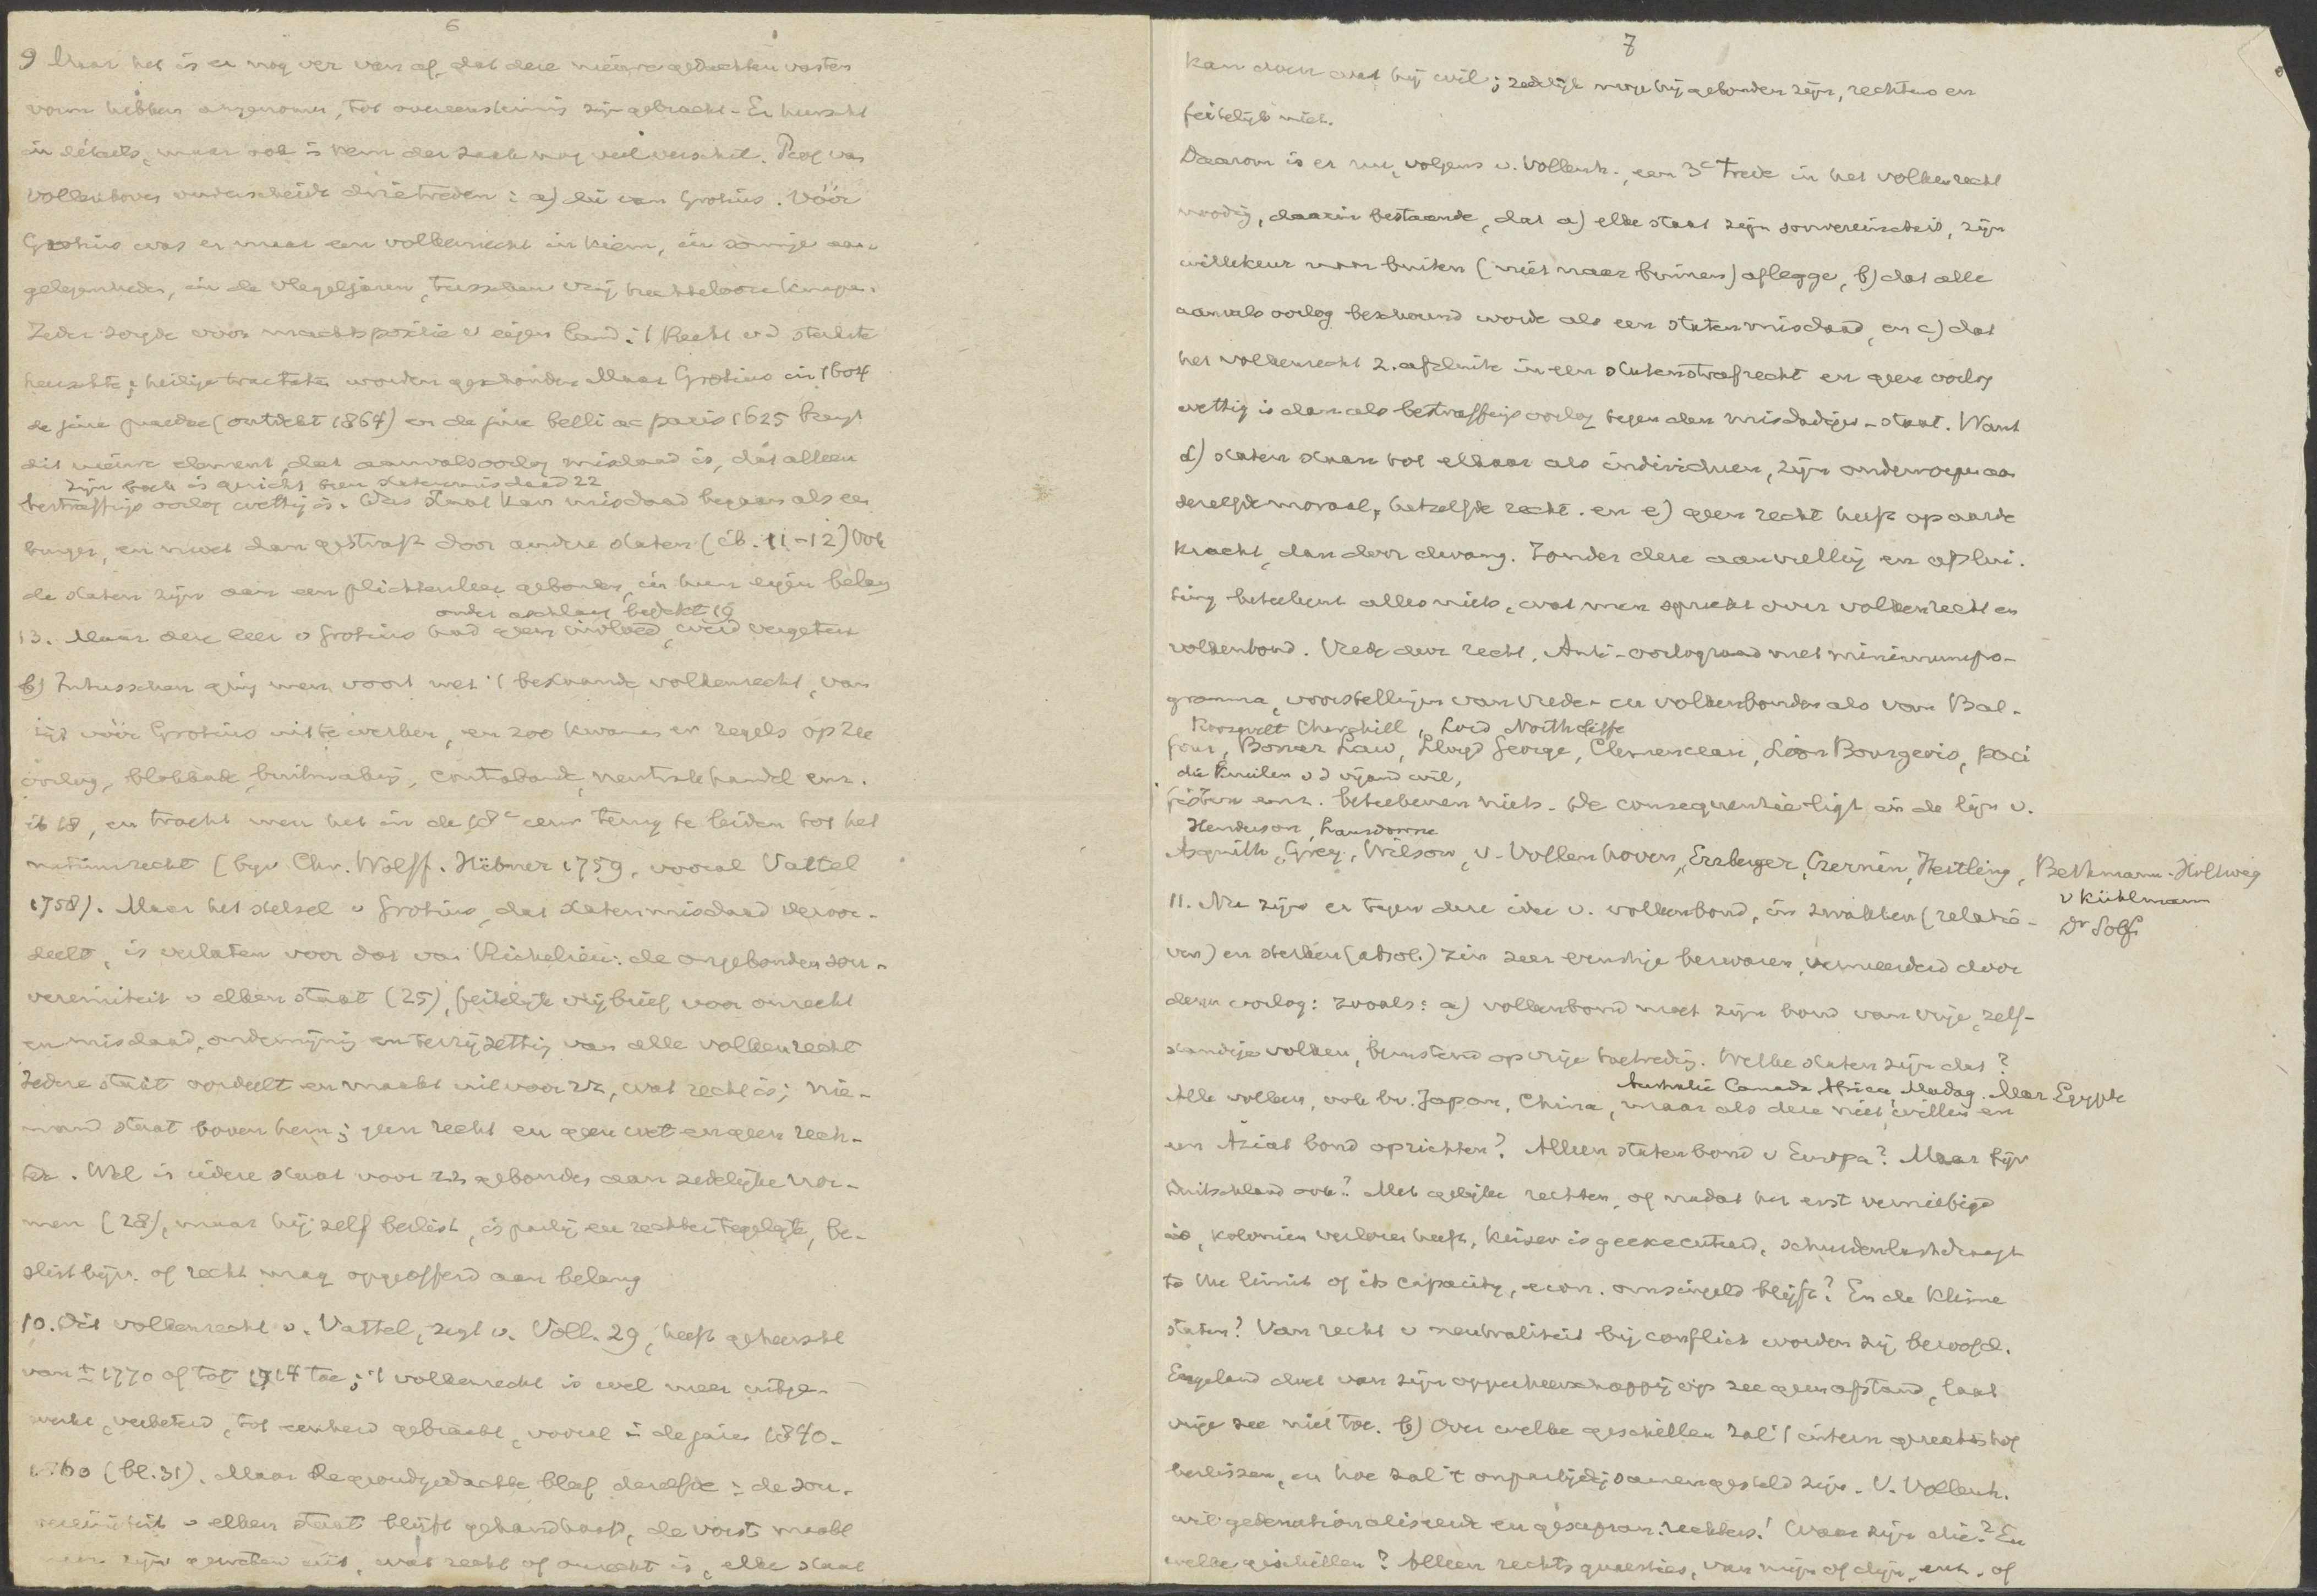 6
9 Maar het is er nog ver van af, dat deze nieuwe gedachten vasten
vorm hebben aangenomen, tot overeenstemming zijn gebracht. Er heerscht
in détails, maar ook in kern der zaak nog veel verschil. Prof van
Vollenhoven onderscheidt drie treden: a) die van Grotius. Vóór
Grotius was er maar een volkenrecht in kiem, in sommige aan-
gelegenheden, in de vlegeljaren, tusschen vrij rechtelooze knapen.
Ieder zorgde voor machtspositie v eigen land: 't Recht v d sterkste
heerschte; heilige tractaten worden geschonden. Maar Grotius in 1604
de jure praedae (ontdekt 1864) en de jure belli ac pacis 1625 brengt
dit nieuwe element, dat aanvalsoorlog misdaad is, dat alleen
zijn boek is gericht tegen statenmisdaad 22
bestraffings oorlog wettig is. Das Staat kan misdaad begaan als een
burger, en moet dan gestraft door andere staten (ib. 11-12) Ook
de staten zijn aan een plichtenleer gebonden, in hun eigen belang
onder aschlaag bedekt 19
13. Maar deze leer v Grotius had geen invloed, werd vergeten
b) Intusschen ging men voort met 't bestaande volkenrecht, van
tijd vóór Grotius uit te werken, en zoo kwamen er regels op zee
oorlog, blokkade, buitmaking, contrabande, neutrale handel enz.
ib 18, en tracht men het in de 18e eeuw terug te leiden tot het
natuurrecht (bijv Chr. Wolff. Hübner 1759, vooral Vattel
1758). Maar het stelsel v Grotius, dat statenmisdaad veroor-
deelt, is verlaten voor dat van Richelieu: de ongebonden sou-
vereiniteit v elken staat (25), feitelijk vrijbrief voor onrecht
en misdaad, ondermijning en terzijzetting van alle volkenrecht
Iedere staat oordeelt en maakt uit voor zich, wat recht is; nie-
mand staat boven hem; geen recht en geen wet en geen rech-
ter. Wel is iedere staat voor zich gebonden aan zedelijke nor-
men (28), maar hij zelf beslist, is partij en rechter tegelijk, be-
slist bijv. of recht mag opgeofferd aan belang
10. Dit volkenrecht v. Vattel, zegt v. Voll. 29, heeft geheerscht
van ± 1770 af tot 1914 toe; 't volkenrecht is wel meer uitge-
werkt, verbeterd, tot eenheid gebracht, vooral in de jaren 1840-
1860 (bl. 31). Maar de grondgedachte bleef dezelfde: de sou-
vereiniteit v elken staat blijft gehandhaafd, de vorst maakt
zijn geweten uit, wat recht of onrecht is, elke staat
7
kan doen wat hij wil; zedelijk moge hij gebonden zijn, rechtens en
feitelijk niet.
Daarom is er nu, volgens v. Vollenh., een 3e trede in het volkenrecht
noodig, daarin bestaande, dat a) elke staat zijn souvereiniteit, zijn
willekeur naar buiten (niet naar binnen) aflegge, b) dat alle
aanvals oorlog beschouwd worde als een statenmisdaad, en c) dat
het volkenrecht z. afsluite in een statenstrafrecht en geen oorlog
wettig is dan als bestraffings oorlog tegen den misdadigen-staat. Want
d) staten staan tot elkaar als individuen, zijn onderworpen aan
dezelfde moraal, hetzelfde recht. en e) geen recht heeft op aarde
kracht, dan door dwang. Zonder deze aanvulling en afslui-
ting beteekent alles niets, wat men spreekt over volkenrecht en
volkenbond. Vrede door recht, Anti-oorlograad met minimumpro-
gramma, voorstellingen van vrede- en volkenbonden als van Bal-
Roosevelt Churchill, Lord Northcliffe
four, Bonar Law, Lloyd George, Clemenceau, Léon Bourgeois, paci
die knielen v d vijand wil,
fisten enz. beteekenen niets. De consequentie ligt in de lijn v.
Henderson, Lansdowne
Asquith, Grey, Wilson, v. Vollenhoven, Erzberger, Czernin, Hertling, Bethmann-Hollweg
v Kühlmann
Dr Solf
11. Nu zijn er tegen deze idee v. volkenbond, in zwakken (relatie-
ven) en sterken (absol.) zin zeer ernstige bezwaren, vermeerderd door
dezen oorlog: zooals: a) volkenbond moet zijn bond van vrije, zelf-
standige volken, berustend op vrije toetreding. Welke staten zijn dat?
Australië Canada Africa Madag. Mar Egypte
Alle volken, ook bv. Japan, China, maar als deze niet willen en
een Aziat bond oprichten? Alleen statenbond v Europa? Maar bijv
Duitschland ook? Met gelijke rechten, of nadat het eerst vernietigd
is, koloniën verloren heeft, keizer is geëxecuteerd, schuldenlast draagt
to the limit of its capacity, econ. omsingeld blijft? En de kleine
staten? Van recht v neutraliteit bij conflict worden zij beroofd.
Engeland doet van zijn opperheerschappij op zee geen afstand, laat
vrije zee niet toe. b) Over welke geschillen zal 't intern gerechtshof
beslissen, en hoe zal 't onpartijdig samengesteld zijn. V. Vollenh.
wil gedenationaliseerde en gesupran. rechters! Waar zijn die? En
welke geschillen? Alleen rechts quaesties, van mijn of dijn, enz. of